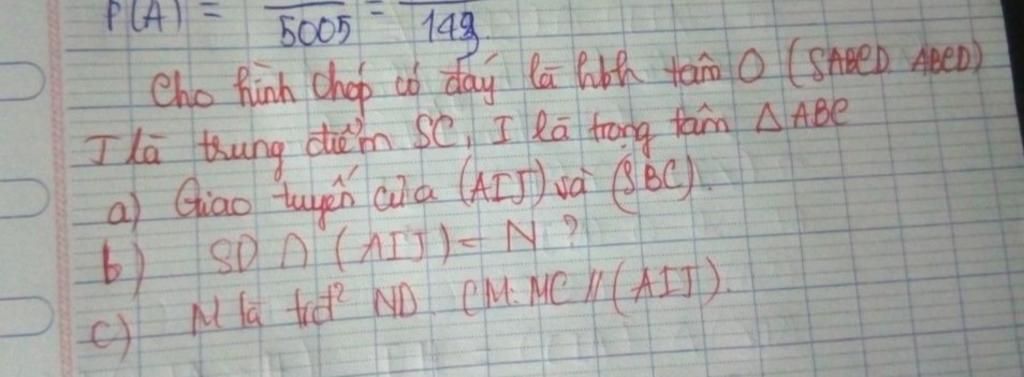 P(A) = ‾5005 = ‾143
Cho hình chóp có đáy là hbh tâm O (SABCD ABCD)
I là trung điểm SC, I là trọng tâm Δ ABC
a) Giao tuyến của (AIJ) và (SBC).
b) SD ∩ (AIJ) = N ?
c) M là tđ² ND. CM: MC // (AIJ).